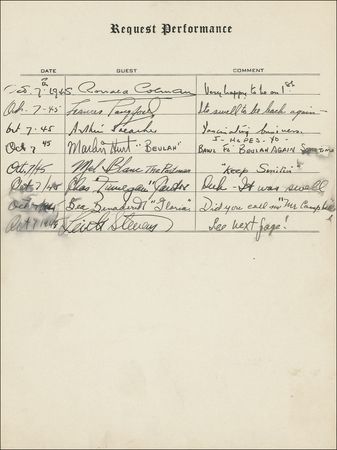 Request Performance
DATE GUEST COMMENT
Oct. 7th 1945 Ronald Colman Very happy to be on 1st
Oct. 7-45 Frances Langford Its swell to be back again—
Oct 7-45 Arthur Treacher Fascinating business.
5-HOPES-YO
Oct 7 45 Marlin Hurt "BEULAH" BAWL FO' BEULAH AGAIN
Oct. 7/45 Mel Blanc The Postman "Keep Smilin"
Oct 7/45 Chas "Finnegan" Cantor Duh - It was swell
Oct 7/45 Bea Benaderet "Gloria" Did you call me "Mr Campbell"
Oct 7 1945 Leith Stevens See next page!